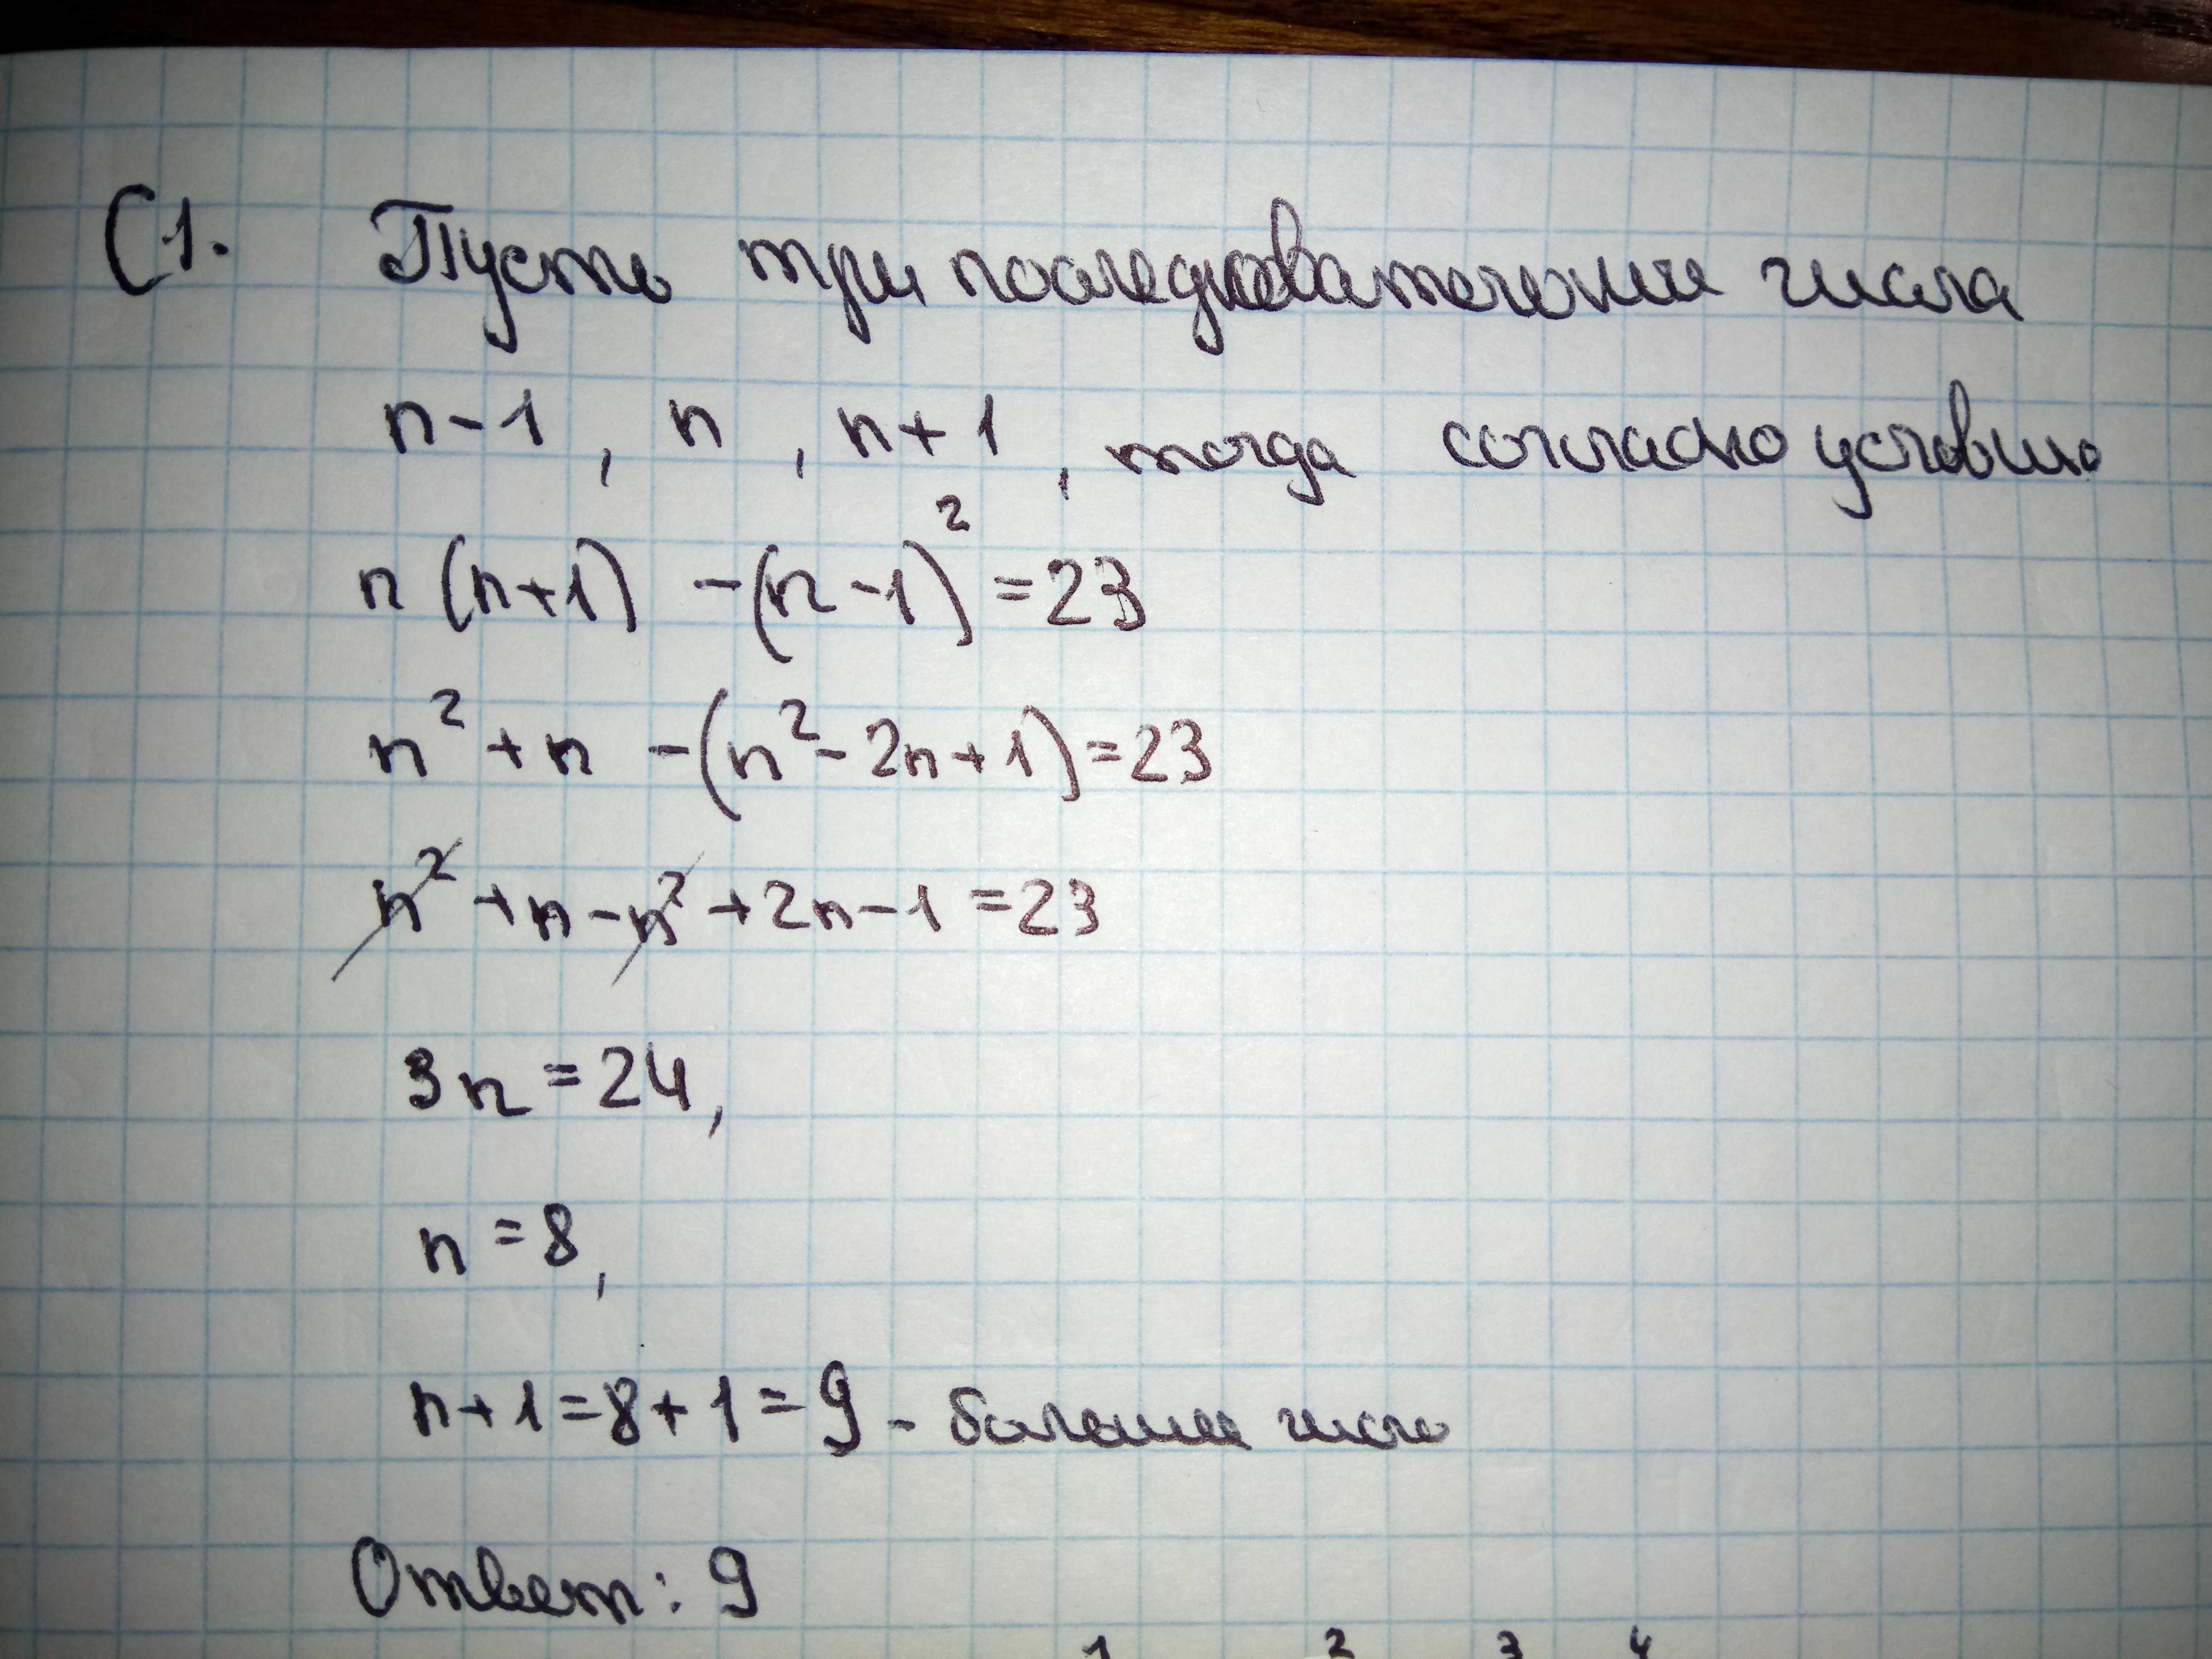 С1. Пусть три последовательные числа
n-1, n, n+1, тогда согласно условию
n(n+1) -(n-1)² =23
n²+n -(n²-2n+1)=23
n²+n-n²+2n-1=23
3n=24,
n=8,
n+1=8+1=9 - большее число
Ответ: 9
1 2 3 4